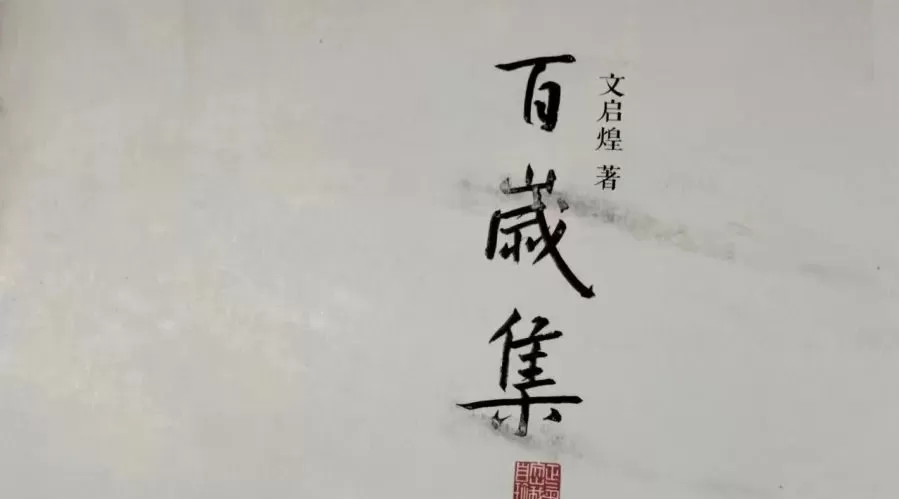 文启煌 著
百歲集